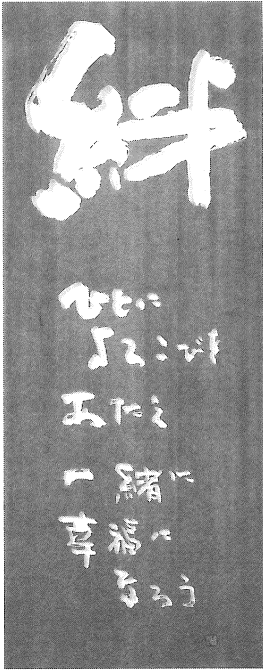 絆
ひとに
よろこびを
あたえ
一緒に
幸福に
なろう